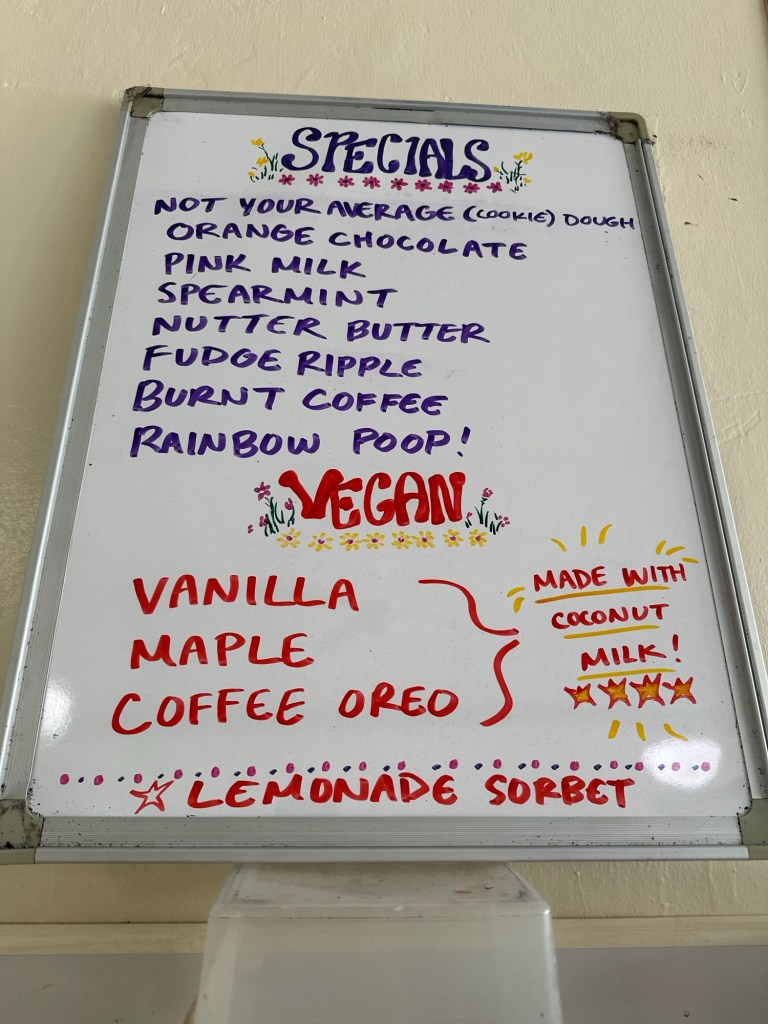 SPECIALS
NOT YOUR AVERAGE (COOKIE) DOUGH
ORANGE CHOCOLATE
PINK MILK
SPEARMINT
NUTTER BUTTER
FUDGE RIPPLE
BURNT COFFEE
RAINBOW POOP!
VEGAN
VANILLA
MAPLE
COFFEE OREO
MADE WITH
COCONUT
MILK!
LEMONADE SORBET